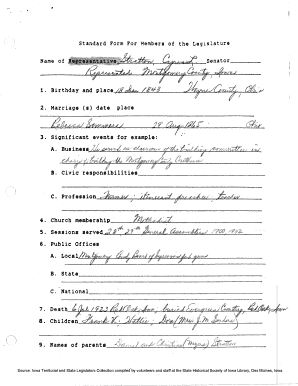 Standard Form For Members of the Legislature
Name of Representative Stratton, Senator
Represented Montgomery County, Iowa
1. Birthday and place 18 Jan 1843 Wayne County, Ohio
2. Marriage (s) date place
Rebecca 28 Aug 1865 Ohio
3. Significant events for example:
A. Business He served as chairman of the building committee in
charge of building the Montgomery County
B. Civic responsibilities
C. Profession Farmer; itinerant preacher, teacher
4. Church membership Methodist
5. Sessions served 28th, 29th General Assemblies 1900, 1902
6. Public Offices
A. Local Montgomery County Board of Supervisors
B. State
C. National
7. Death 1923 Red Oak, Iowa; buried Evergreen Cemetery, Red Oak, Iowa
8. Children Frank
9. Names of parents Daniel and Christina Stratton
Source: Iowa Territorial and State Legislators Collection compiled by volunteers and staff at the State Historical Society of Iowa Library, Des Moines, Iowa